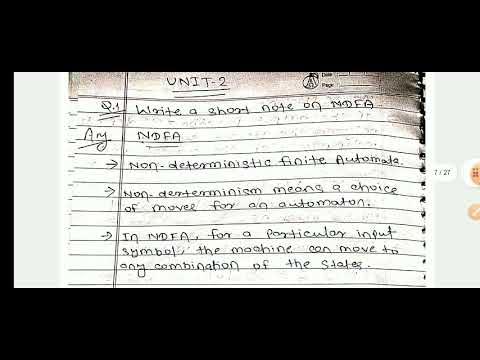 UNIT-2
Date
Page
Q.1 Write a short note on NDFA
Ans NDFA
→ Non-deterministic finite Automata.
→ Non-determinism means a choice
of moves for an automaton.
→ In NDFA, for a particular input
symbol, the machine can move to
any combination of the states.
7 / 27